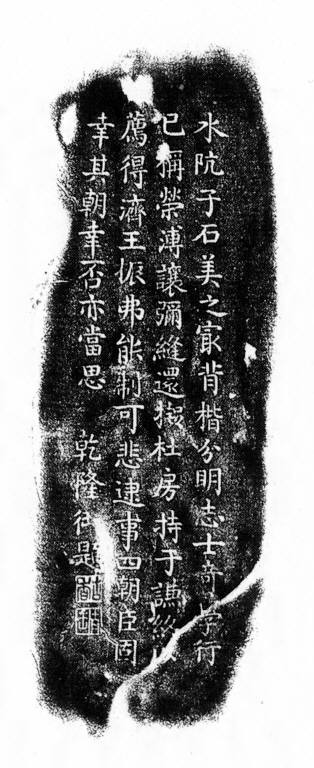 水阬子石美之㝡背楷分明志士奇學行
已稱榮溥讓彌縫還擬杜房持于謙終以
薦得濟王振弗能制可悲逮事四朝臣固
幸其朝幸否亦當思 乾隆御題